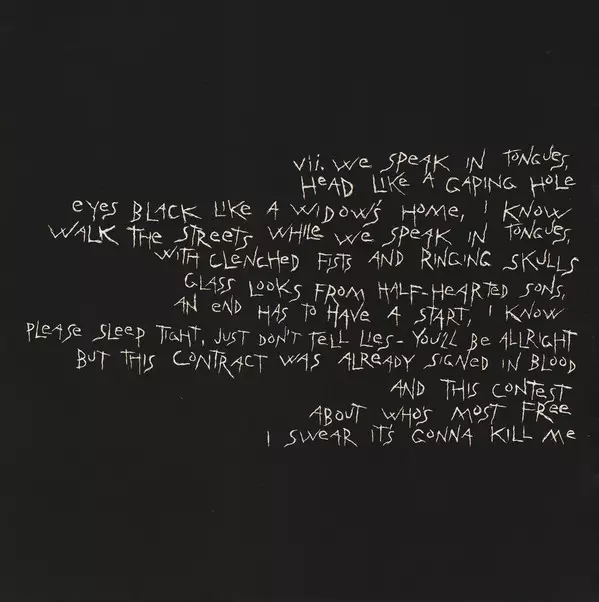 vii. we speak in tongues,
head like a gaping hole
eyes black like a widow's home, i know
walk the streets while we speak in tongues,
with clenched fists and ringing skulls
glass looks from half-hearted sons,
an end has to have a start, i know
please sleep tight, just don't tell lies - you'll be allright
but this contract was already signed in blood
and this contest
about who's most free
i swear it's gonna kill me